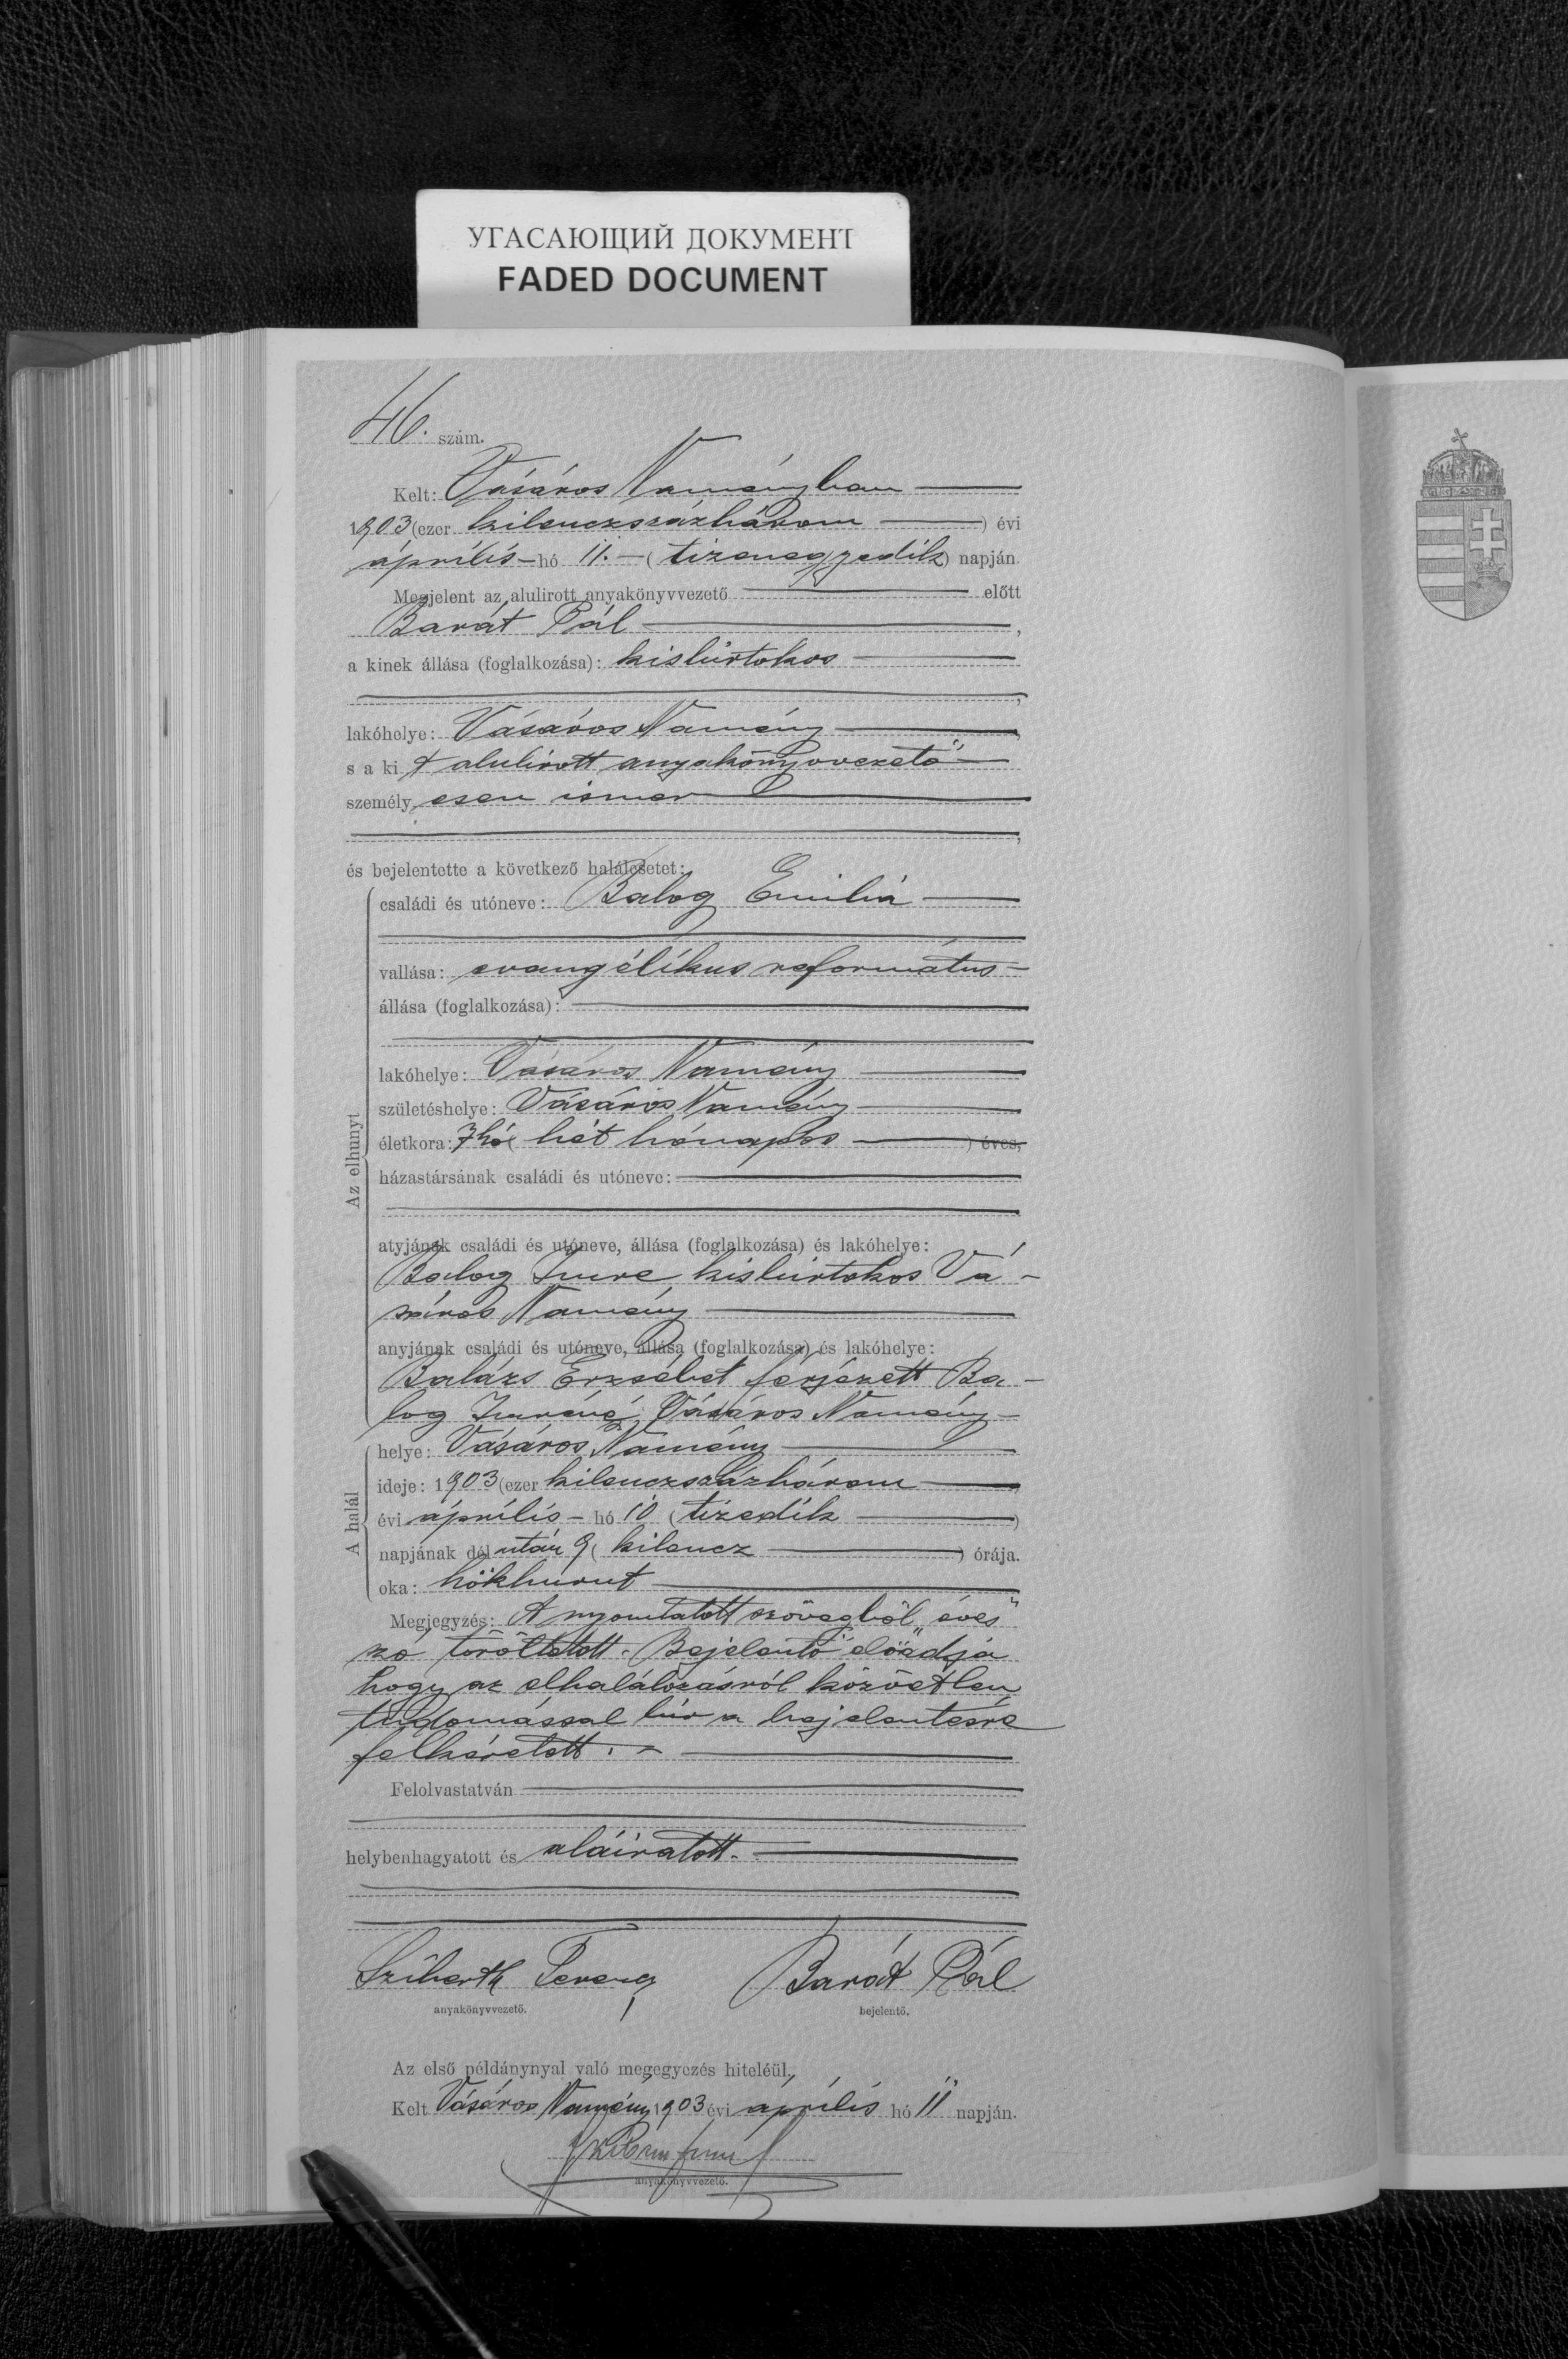 УГАСАЮЩИЙ ДОКУМЕНТ
FADED DOCUMENT
46. szám.
Kelt: Vásáros Naményban
1903 (ezer kilenczszázhárom ) évi
április hó 11. ( tizenegyedik ) napján.
Megjelent az alulirott anyakönyvvezető előtt
Barát Pál ,
a kinek állása (foglalkozása): kisbirtokos
,
lakóhelye: Vásáros Namény ,
s a ki t alulírott anyakönyvvezető
személy esen ismer
,
és bejelentette a következő halálesetet:
Az elhunyt
családi és utóneve: Balog Emilia
vallása: evangélikus református
állása (foglalkozása):
lakóhelye: Vásáros Namény
születéshelye: Vásáros Namény
életkora: 7 hó ( hét hónapos ) éves,
házastársának családi és utóneve:
atyjának családi és utóneve, állása (foglalkozása) és lakóhelye:
Balog Imre kisbirtokos Vá-
sáros Namény
anyjának családi és utóneve, állása (foglalkozása) és lakóhelye:
Balázs Erzsébet férjezett Ba-
log Imréné Vásáros Namény
A halál
helye: Vásáros Namény
ideje: 1903 (ezer kilenczszázhárom
évi április hó 10 ( tizedik )
napjának dél után 9 ( kilencz ) órája.
oka: hökhurut
Megjegyzés: A nyomtatott szövegből „éves"
szó töröltetett. Bejelentő előadja
hogy az elhalálozásról közvetlen
tudomással bír a bejelentésre
felkéretett.
Felolvastatván
helybenhagyatott és aláiratott.
Ferencz Barát Pál
anyakönyvvezető. bejelentő.
Az első példánynyal való megegyezés hiteléül.
Kelt Vásáros Namény 1903 évi április hó 11 napján.
anyakönyvvezető.